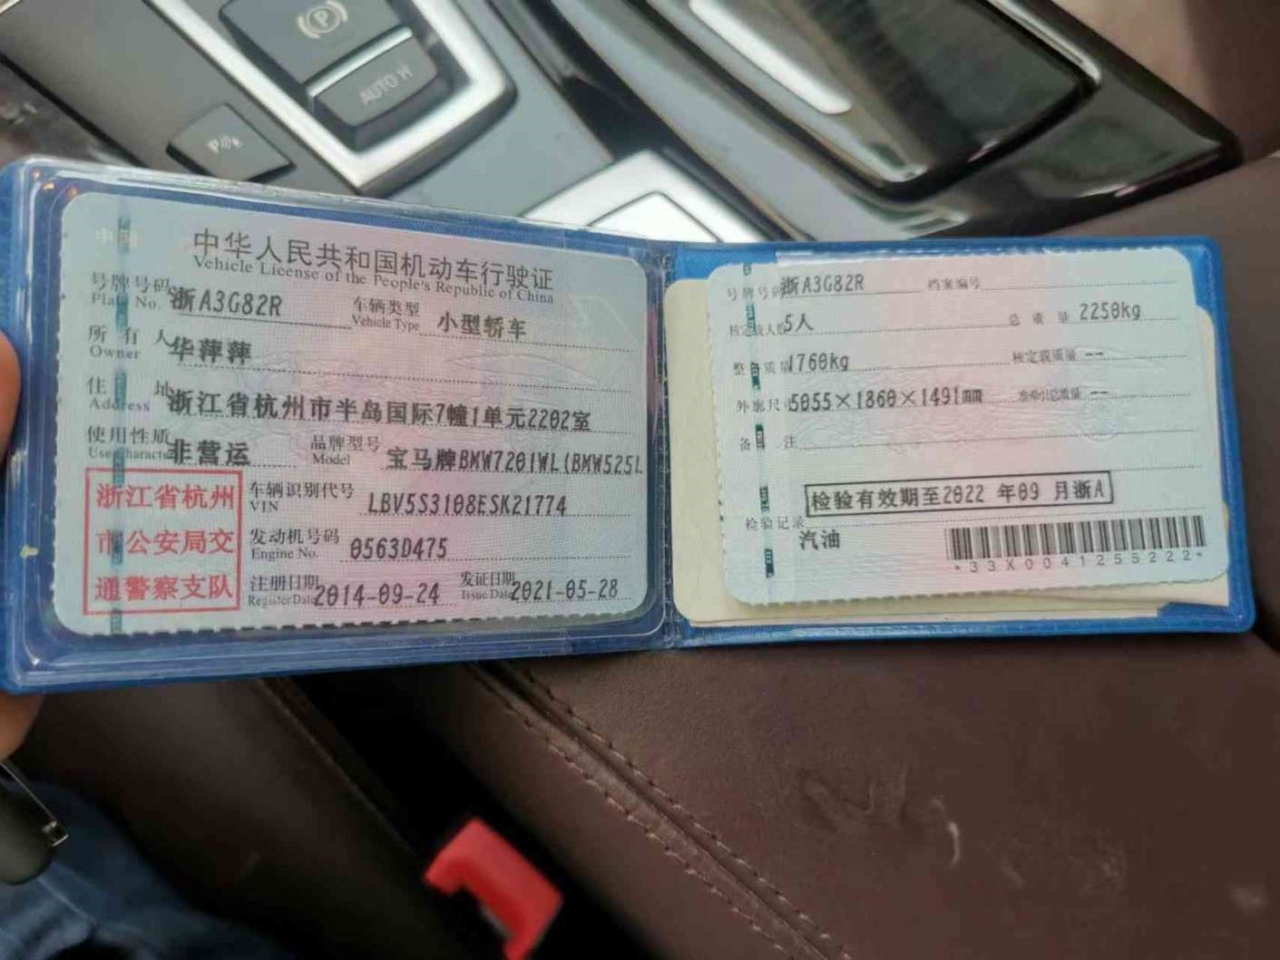 AUTO H
中华人民共和国机动车行驶证
Vehicle License of the People's Republic of China
号牌号码 浙A3G82R 车辆类型 小型轿车
Plate No. Vehicle Type
所有人 华萍萍
Owner
住址 浙江省杭州市半岛国际7幢1单元2202室
Address
使用性质 非营运 品牌型号 宝马牌BMW7201WL(BMW525L
Use Character Model
浙江省杭州
市公安局交
通警察支队
车辆识别代号 LBV5S3108ESK21774
VIN
发动机号码 0563D475
Engine No.
注册日期 2014-09-24 发证日期 2021-05-28
Register Date Issue Date
号牌号码 浙A3G82R 档案编号
核定载人数 5人 总质量 2250kg
整备质量 1760kg 核定载质量 --
外廓尺寸 5055×1860×1491mm 准牵引总质量 --
备注
检验有效期至2022 年09 月浙A
检验记录
汽油
*33X0041255222*